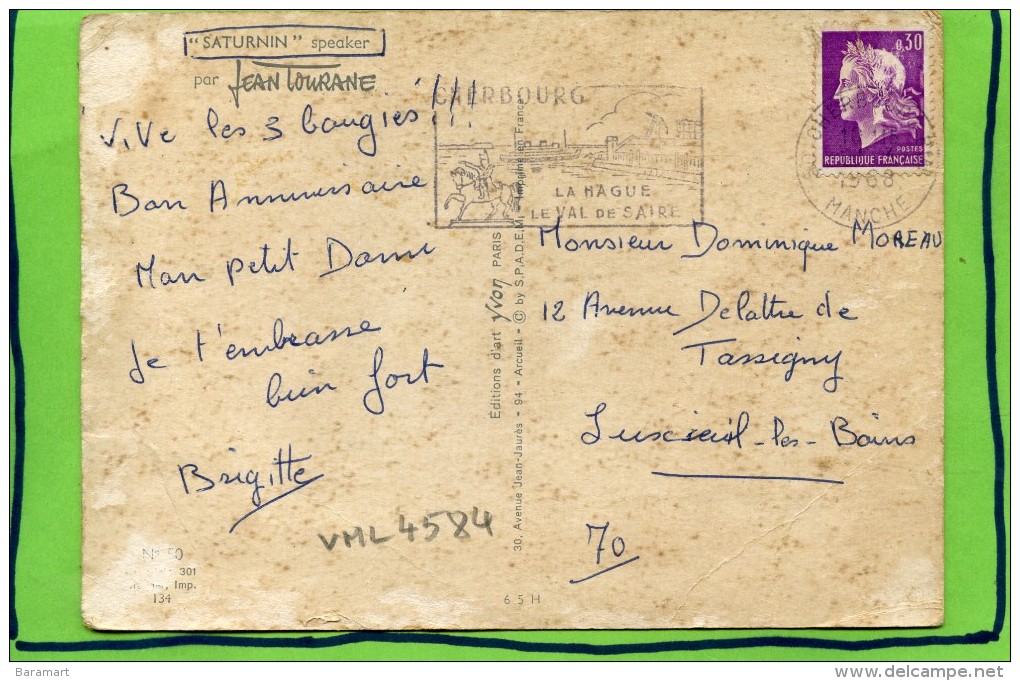 "SATURNIN" speaker
par JEAN TOURANE
ViVe les 3 bougies!!!
Bon Anniversaire
Mon petit Domi
Je t'embrasse
bien fort
Brigitte
VML 4584
134
301
Imp.
6 5 H
Éditions d'art yvon PARIS
30, Avenue Jean-Jaurès - 94 - Arcueil - © by S.P.A.D.E.M. - Imprimé en France
CHERBOURG
LA HAGUE
LE VAL DE SAIRE
0,30
POSTES
REPUBLIQUE FRANÇAISE
1968
MANCHE
Monsieur Dominique MOREAU
12 Avenue Delattre de
Tassigny
Luxeuil-les-Bains
70
Baramart
delcampe.net